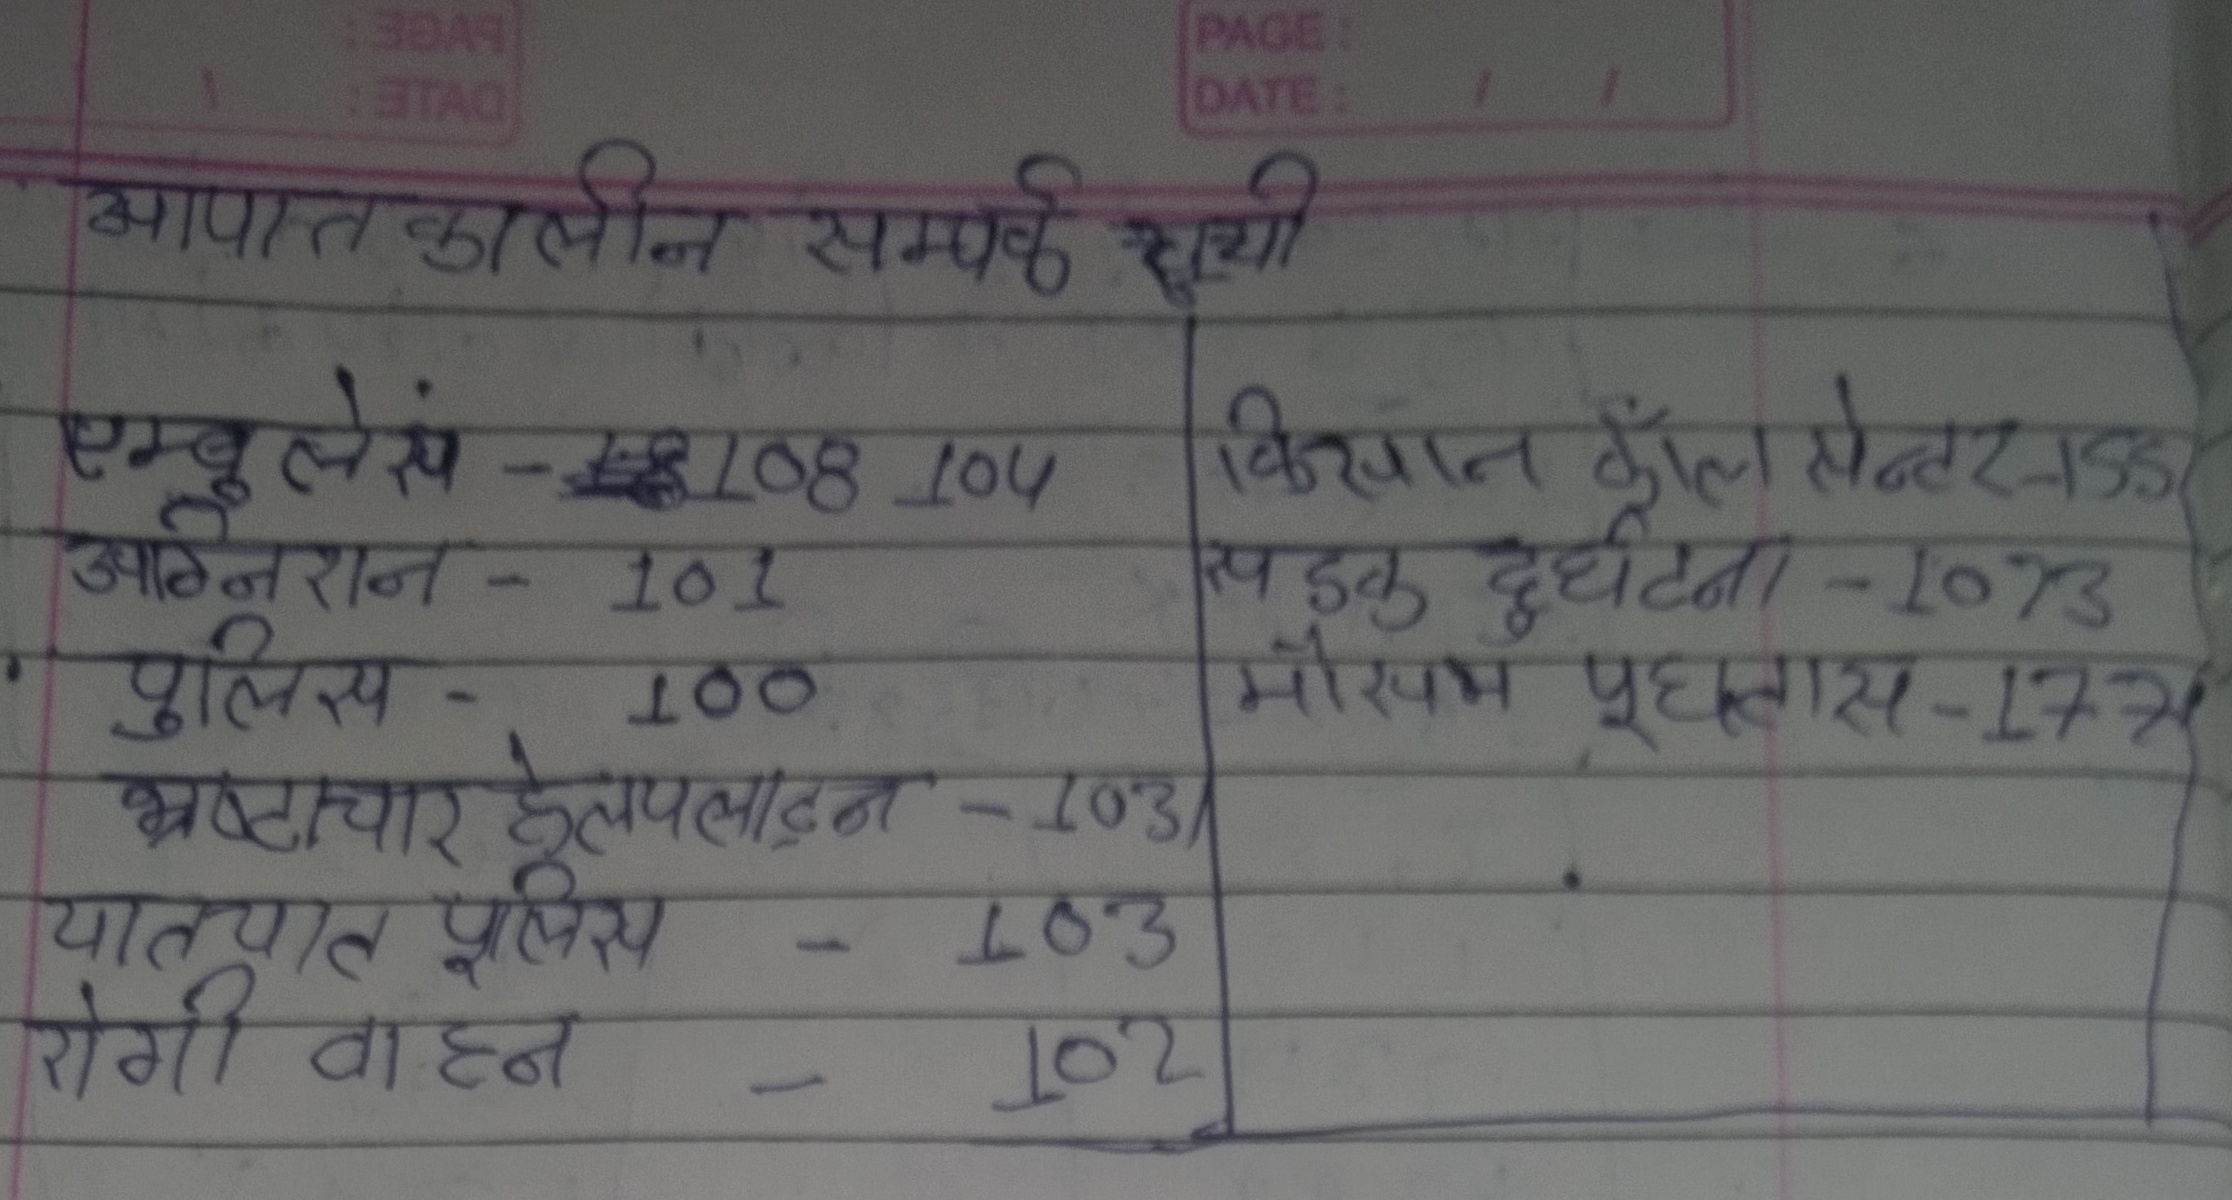 PAGE :
DATE : / /
आपातकालीन सम्पर्क सूची
एम्बुलेंस - 108 104
अग्निशन - 101
पुलिस - 100
भ्रष्टाचार हेलपलाइन - 1031
यातयात पुलिस - 103
रोगी वाहन - 102
किसान कॉल सेन्टर-155
सडक दुर्घटना - 1073
मौसम - 177